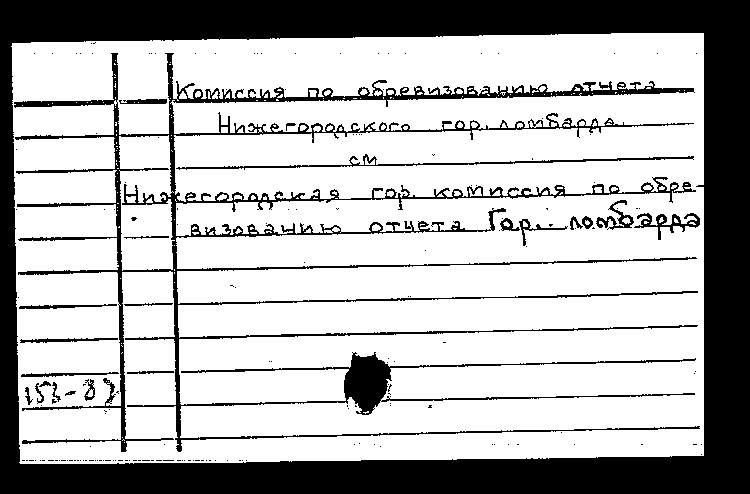 Комиссия по обревизованию отчета
Нижегородского гор. ломбарда
см
Нижегородская гор. комиссия по обре-
визованию отчета Гор. ломбарда